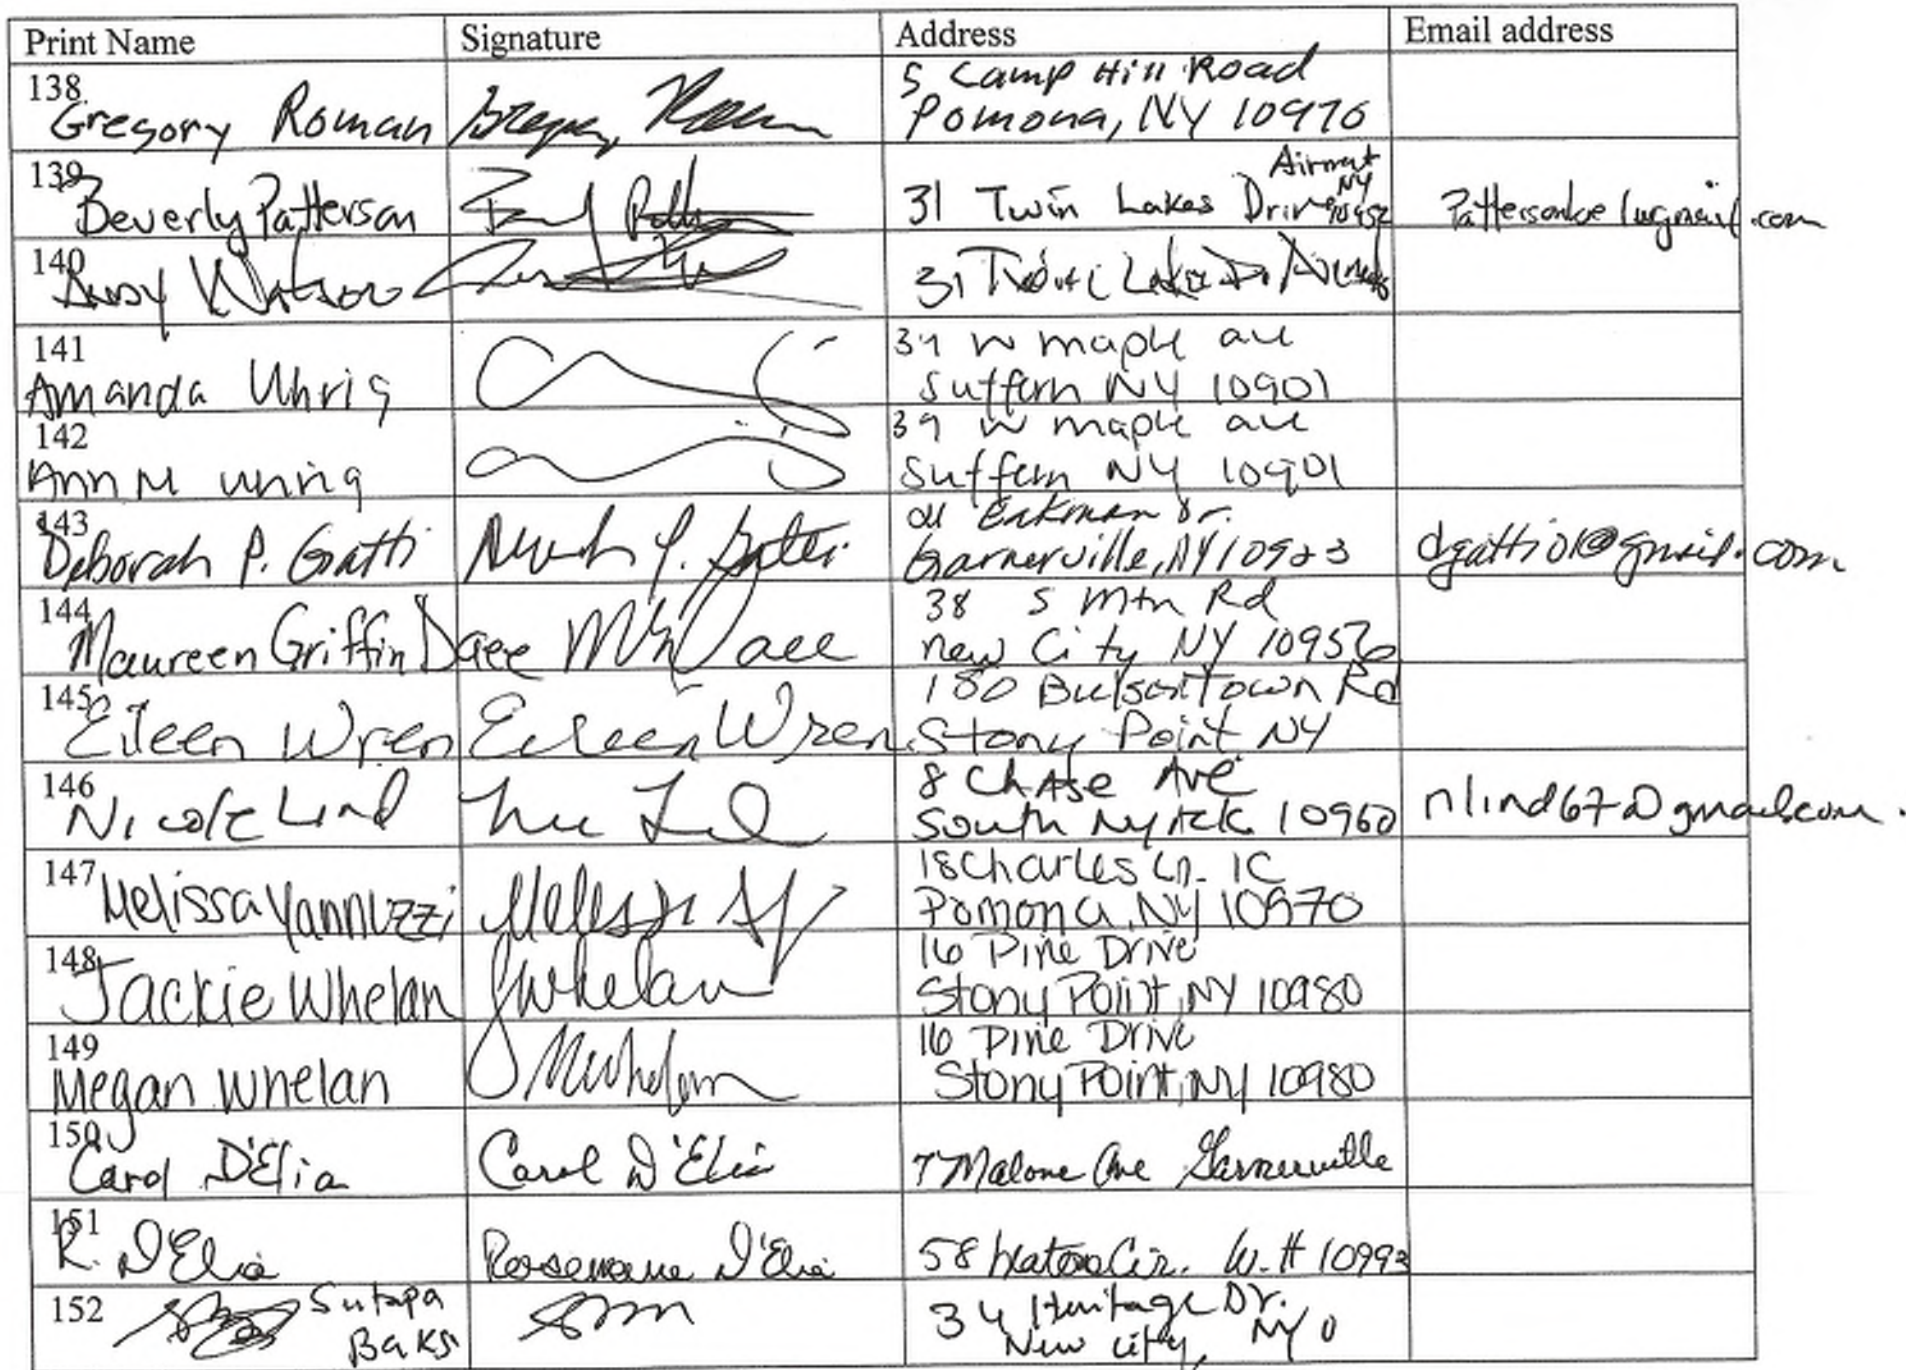 Print Name Signature Address Email address
138 Gregory Roman 5 Camp Hill Road
Pomona, NY 10970
139 Beverly Patterson 31 Twin Lakes Drive Airmont NY 10952
140 Watson 31
141 Amanda Uhrig 39 W maple ave
Suffern NY 10901
142 Ann M Uhrig 39 W maple ave
Suffern NY 10901
143 Deborah P. Gatti Dr.
Garnerville, NY 10923 dgatti01@gmail.com
144 Maureen Griffin Dace 38 S Mtn Rd
New City NY 10956
145 Eileen Wren Eileen Wren 180 Bulsontown Rd
Stony Point NY
146 Nicole Lind 8 Chase Ave
South Nyack 10960 nlind67@gmail.com
147 Melissa Yannuzzi 18 Charles Ln. 1C
Pomona, NY 10970
148 Jackie Whelan JWhelan 16 Pine Drive
Stony Point, NY 10980
149 Megan Whelan 16 Pine Drive
Stony Point, NY 10980
150 Carol D'Elia Carol D'Elia 7 Malone Ave Garnerville
151 R. D'Elia Rosemarie D'Elia 58 Cir. W. H 10993
152 Sutapa
Baksi 34 Heritage Dr.
New City, NY